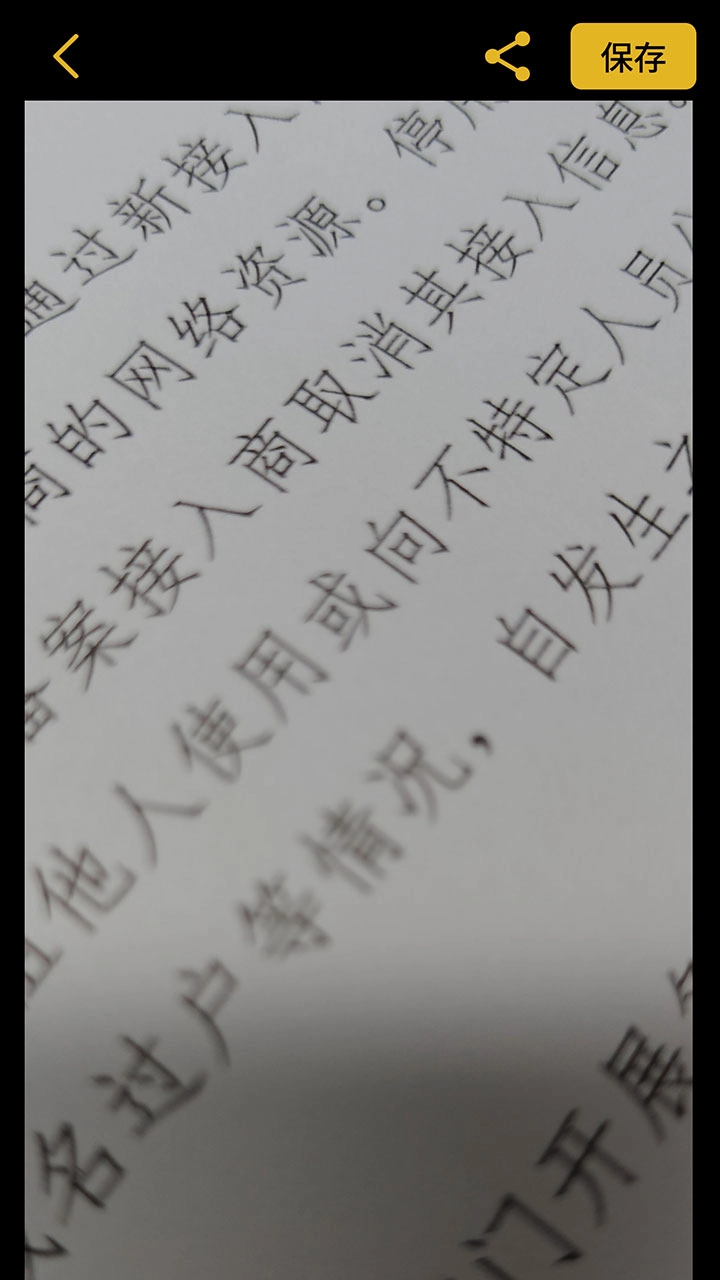 保存
通过新接入
商的网络资源。停用
备案接入商取消其接入信息。
他人使用或向不特定人员
自发生之
域名过户等情况，
门开展